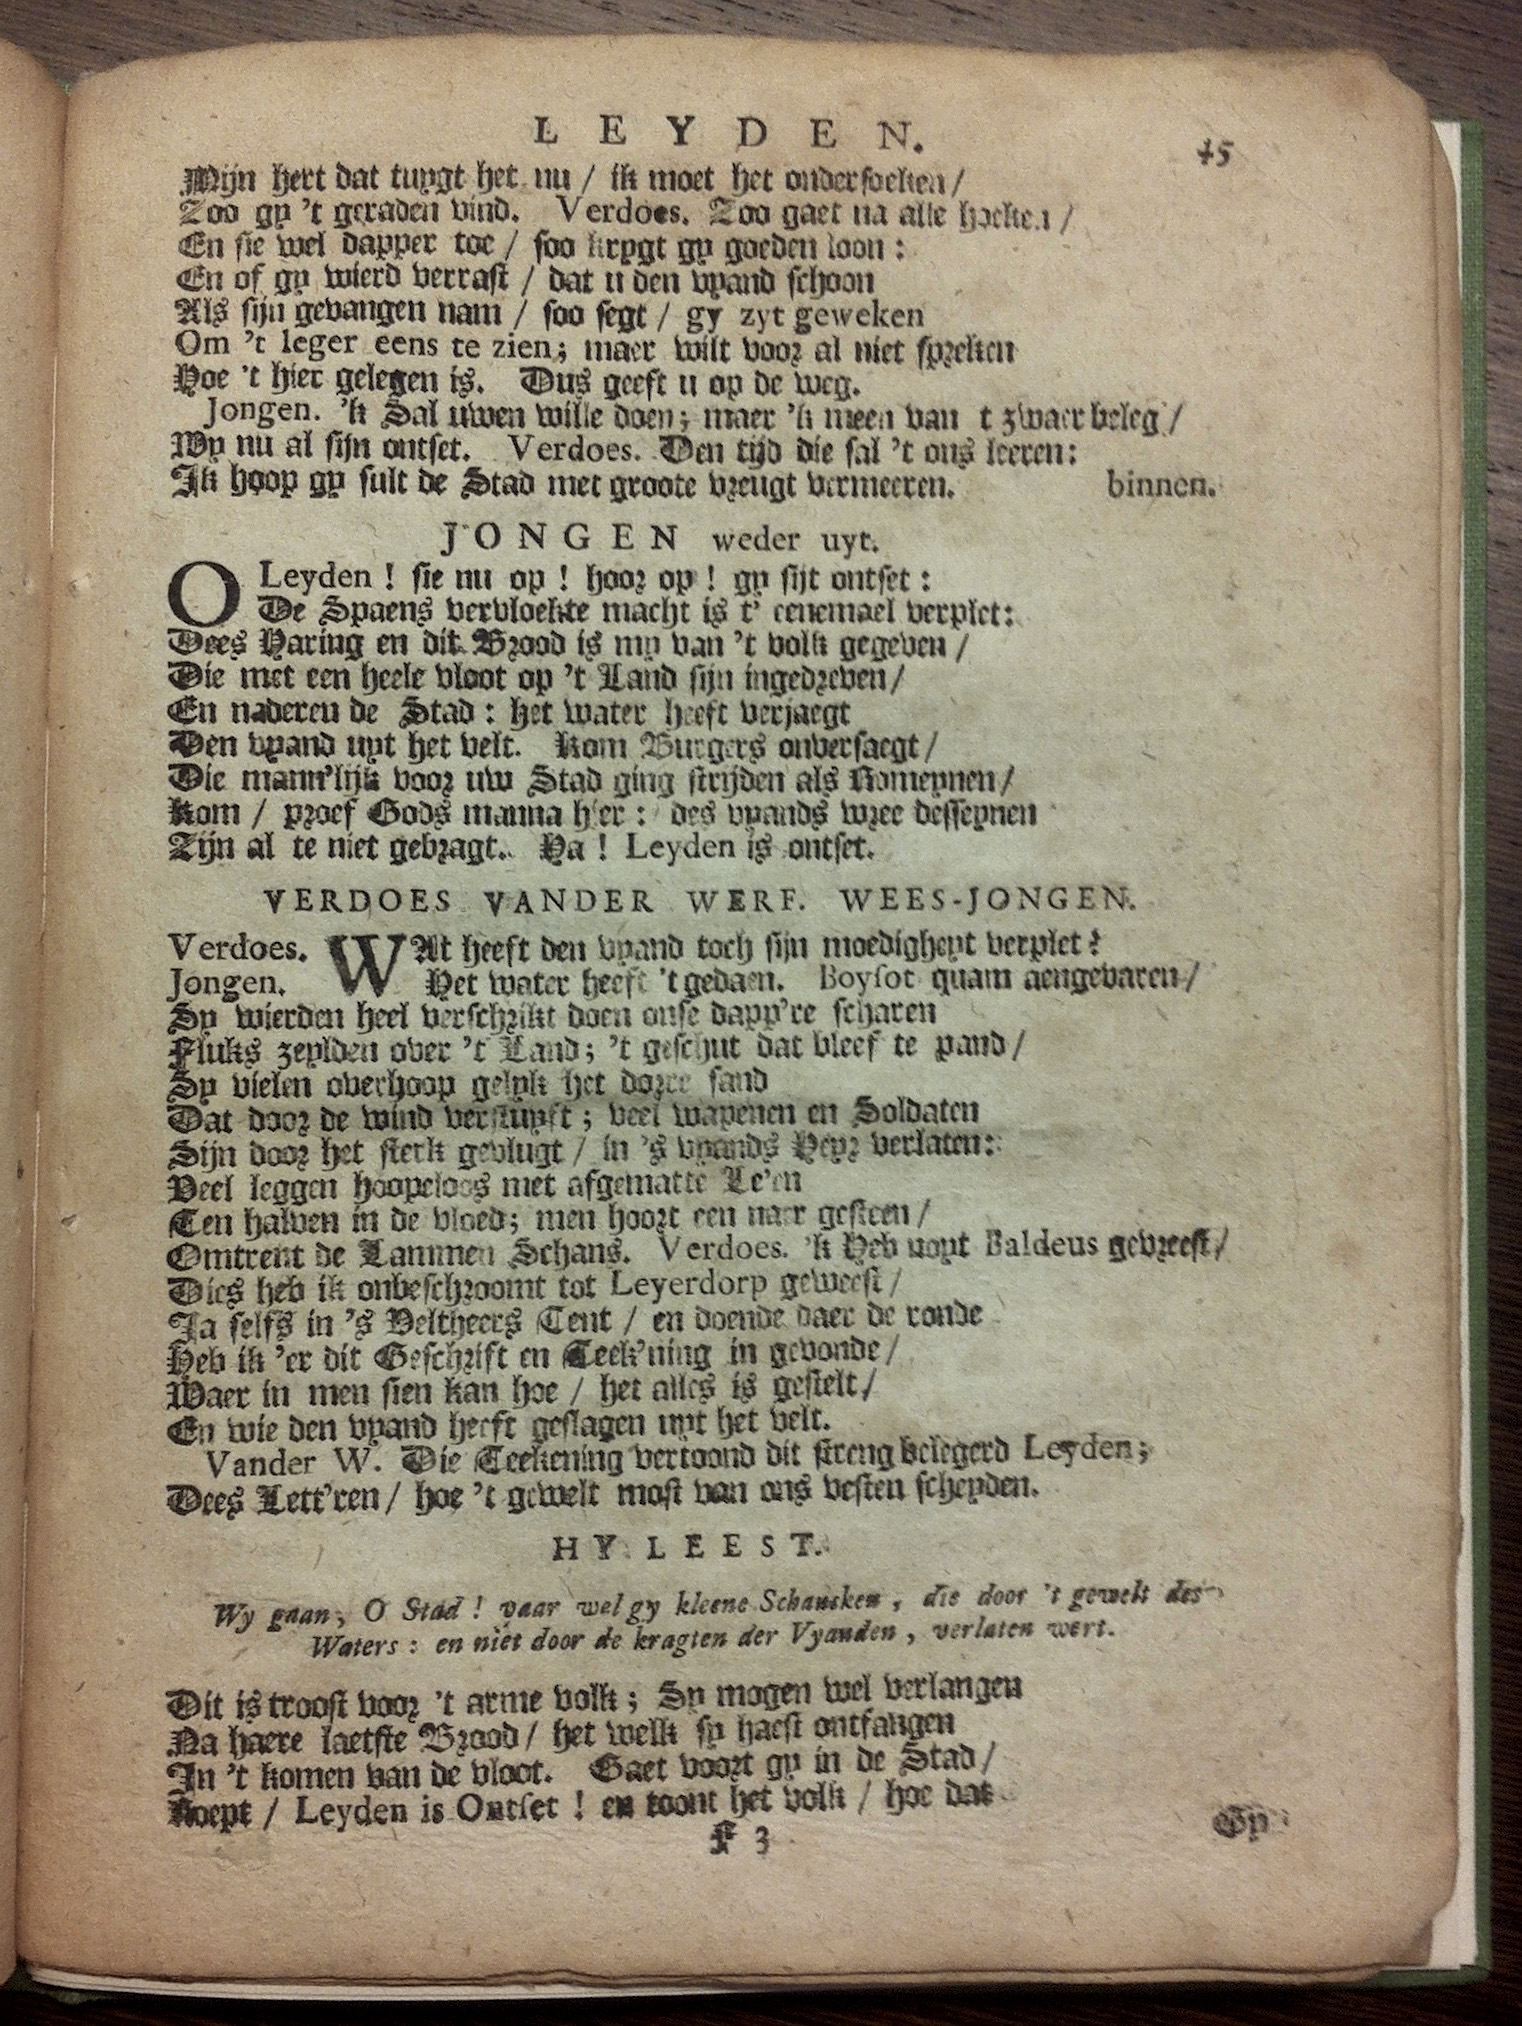 LEYDEN. 45
Mijn hert dat tuygt het nu / ik moet het ondersoeken /
Zoo gy 't geraden vind. Verdoes. Zoo gaet na alle hoeken /
En sie wel dapper toe / soo krygt gy goeden loon :
En of gy wierd verrast / dat u den vyand schoon
Als sijn gevangen nam / soo segt / gy zyt geweken
Om 't leger eens te zien; maer wilt voor al niet spreken
Hoe 't hier gelegen is. Dus geeft u op de weg.
Jongen. 'k Sal uwen wille doen; maer 'k meen van t zwaer beleg /
Wy nu al sijn ontset. Verdoes. Den tijd die sal 't ons leeren:
Ik hoop gy sult de Stad met groote vreugt vermeeren. binnen.
JONGEN weder uyt.
O Leyden ! sie nu op ! hoor op ! gy sijt ontset :
De Spaens vervloekte macht is t' eenemael verplet:
Dees Haring en dit Brood is my van 't volk gegeven /
Die met een heele vloot op 't Land sijn ingedreven /
En naderen de Stad : het water heeft verjaegt
Den vyand uyt het velt. Kom Burgers onversaegt /
Die mann'lijk voor uw Stad ging strijden als Romeynen /
Kom / proef Gods manna hier : des vyands wree desseynen
Zijn al te niet gebragt. Ha ! Leyden is ontset.
VERDOES VANDER WERF. WEES-JONGEN.
Verdoes. WAt heeft den vyand toch sijn moedigheyt verplet?
Jongen. Het water heeft 't gedaen. Boysot quam aengevaren /
Sy wierden heel verschrikt doen onse dapp're scharen
Fluks zeylden over 't Land; 't geschut dat bleef te pand /
Sy vielen overhoop gelyk het dorre sand
Dat door de wind verstuyft ; veel wapenen en Soldaten
Sijn door het sterk gevlugt / in 's vyands Heyr verlaten:
Veel leggen hoopeloos met afgematte Le'en
Ten halven in de vloed; men hoort een naer gesteen /
Omtrent de Lammen Schans. Verdoes. 'k Heb noyt Baldeus gevreest /
Dies heb ik onbeschroomt tot Leyerdorp geweest /
Ja selfs in 's Veltheers Tent / en doende daer de ronde
Heb ik 'er dit Geschrift en Teek'ning in gevonde /
Waer in men sien kan hoe / het alles is gestelt /
En wie den vyand heeft geslagen uyt het velt.
Vander W. Die Teekening vertoond dit streng belegerd Leyden;
Dees Lett'ren / hoe 't gewelt most van ons vesten scheyden.
HY LEEST.
Wy gaan, O Stad ! vaar wel gy kleene Schansken, die door 't gewelt des
Waters : en niet door de kragten der Vyanden, verlaten wert.
Dit is troost voor 't arme volk ; Sy mogen wel verlangen
Na haere laetste Brood / het welk sy haest ontfangen
In 't komen van de vloot. Gaet voort gy in de Stad /
Roept / Leyden is Ontset ! en toont het volk / hoe dat
F 3 Gy